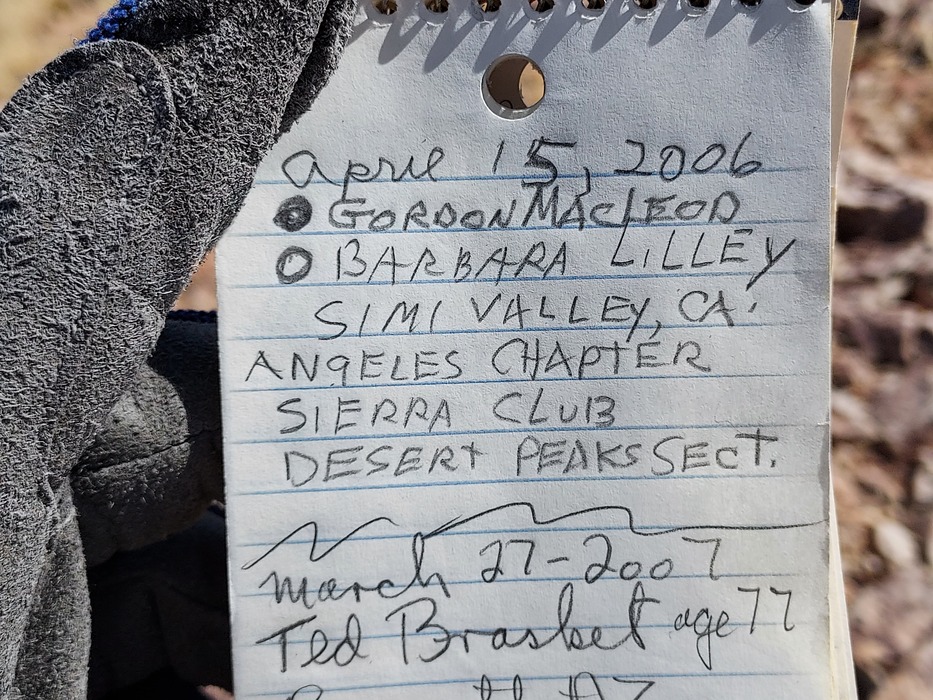 April 15, 2006
GORDON MACLEOD
BARBARA LILLEY
SIMI VALLEY, CA.
ANGELES CHAPTER
SIERRA CLUB
DESERT PEAKS SECT.
March 27-2007
Ted Brasket age 77
AZ